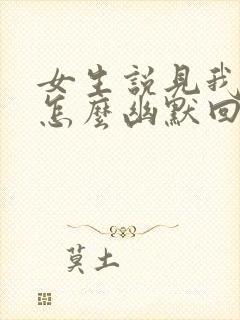 女生説見我
怎麽幽默回
莫土